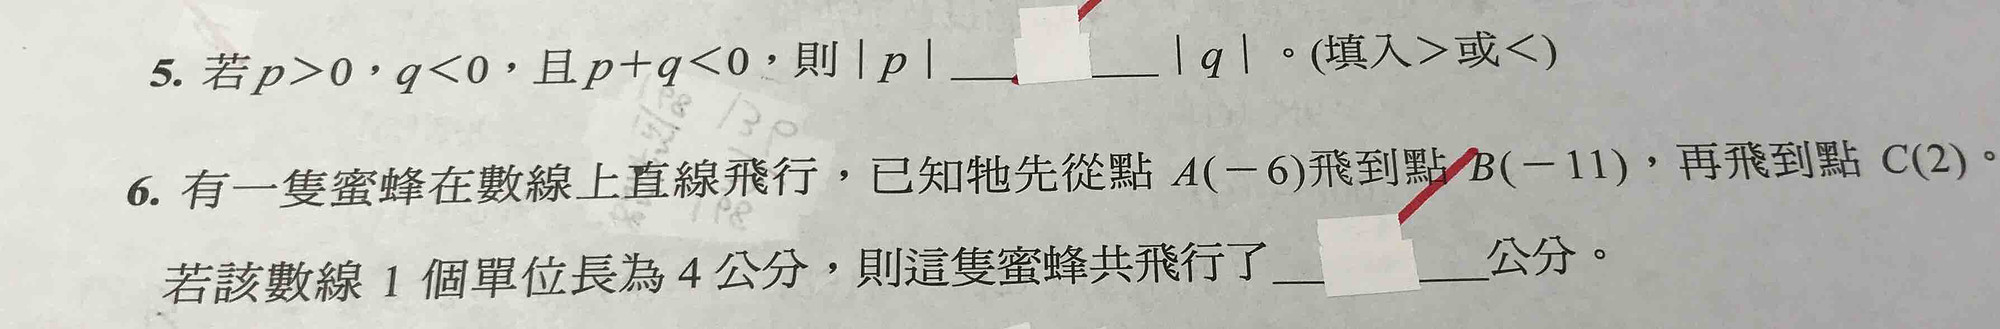 5. 若p>0，q<0，且p+q<0，則|p|______|q|。(填入>或<)
6. 有一隻蜜蜂在數線上直線飛行，已知牠先從點 A(-6)飛到點 B(-11)，再飛到點 C(2)。
若該數線 1 個單位長為 4 公分，則這隻蜜蜂共飛行了______公分。